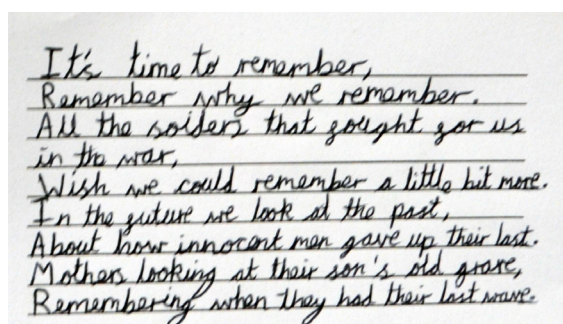 It's time to remember,
Remember why we remember.
All the soiders that fought for us
in the war,
Wish we could remember a little bit more.
In the future we look at the past,
About how innocent men gave up their last.
Mothers looking at their son's old grave,
Remembering when they had their last wave.